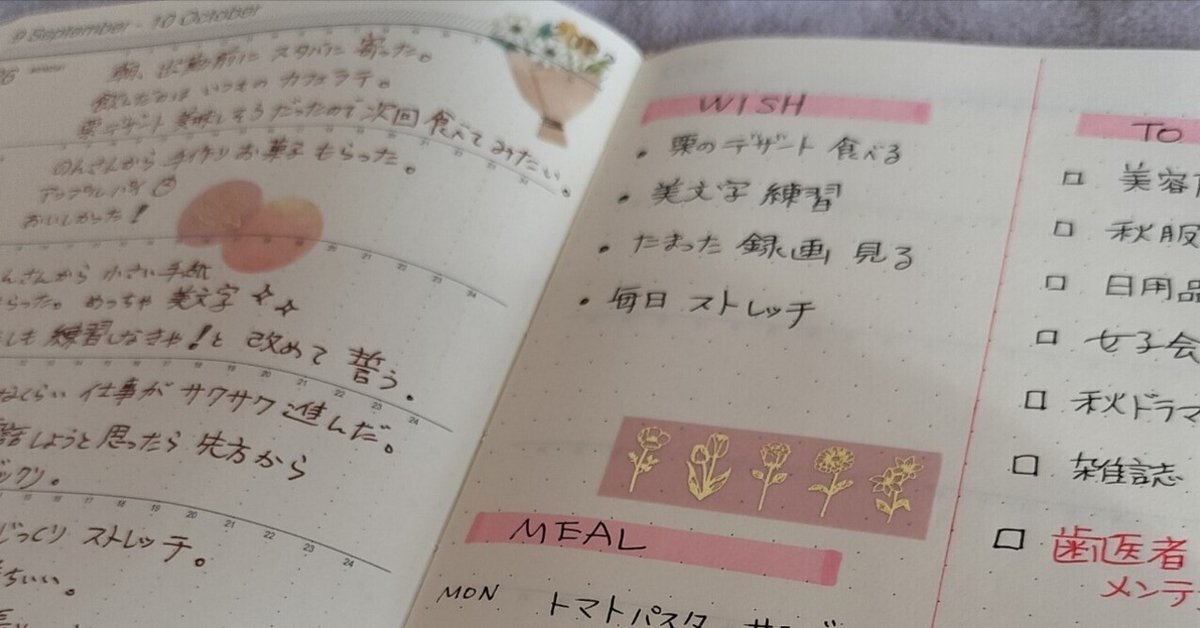 9 September - 10 October
朝、出勤前に スタバに 寄った。
飲んだのは いつもの カフェラテ。
栗デザート 美味しそうだったので 次回 食べてみたい。
のんさんから 手作り お菓子 もらった。
アップルパイ
おいしかった!
んさんから 小さい 手紙
らった。めっちゃ 美文字 ☆☆
しも 練習しなきゃ!と 改めて 誓う。
くらい 仕事が サクサク 進んだ。
話しようと 思ったら 先方から
ックリ。
じっくり ストレッチ。
ちいい。
WISH
・栗のデザート 食べる
・美文字 練習
・たまった 録画 見る
・毎日 ストレッチ
MEAL
MON トマトパスタ
TO
□ 美容
□ 秋服
□ 日用品
□ 女子会
□ 秋ドラマ
□ 雑誌
□ 歯医者
メンテ